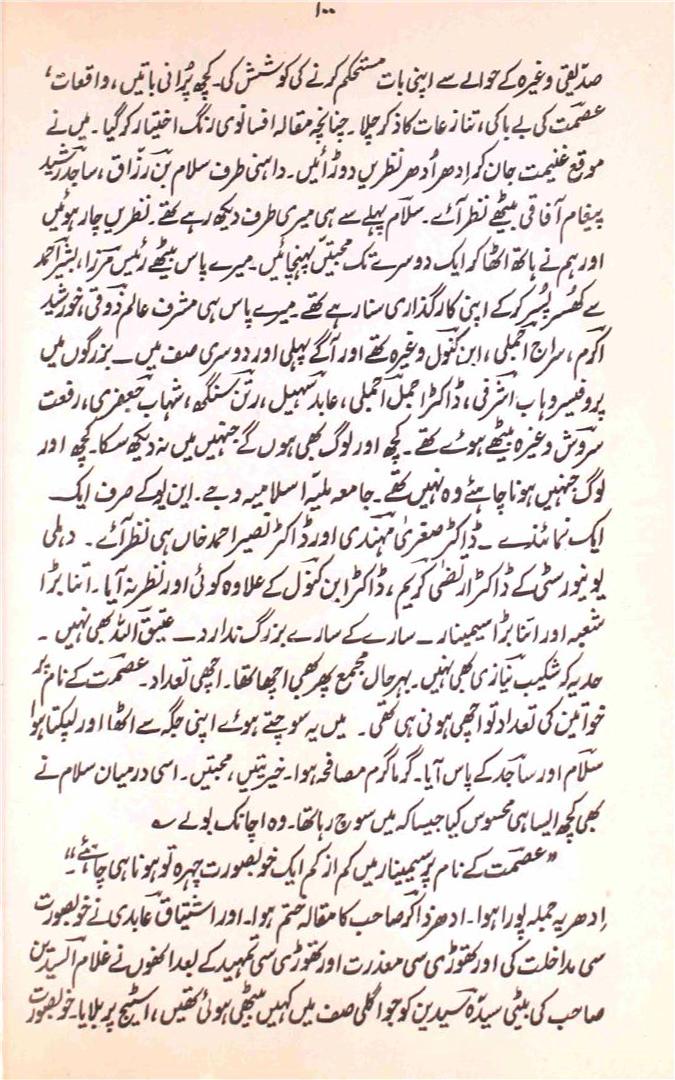 ۱۰۰
صدیقی وغیرہ کے حوالے سے اپنی بات مستحکم کرنے کی کوشش کی۔ کچھ پُرانی باتیں، واقعات،
عصمت کی بے باکی، تنازعات کا ذکر چلا۔ چنانچہ مقالہ افسانوی رنگ اختیار کر گیا۔ میں نے
موقع غنیمت جان کر اِدھر اُدھر نظریں دوڑائیں۔ داہنی طرف سلام بن رزّاق، ساجد رشید
پیغام آفاقی بیٹھے نظر آئے۔ سلام پہلے سے ہی میری طرف دیکھ رہے تھے۔ نظریں چار ہوئیں
اور ہم نے ہاتھ اٹھا کر ایک دوسرے تک محبتیں پہنچائیں۔ میرے پاس بیٹھے رئیس مرزا، بشیر احمد
سے کھُسر پُسر کر کے اپنی کارگذاری سنا رہے تھے۔ میرے پاس ہی مشرف عالم ذوقی، خورشید
اکرم، سراج اجملی، ابن کنول وغیرہ تھے اور آگے پہلی اور دوسری صف میں ۔ بزرگوں میں
پروفیسر وہاب اشرفی، ڈاکٹر اجمل اجملی، عابد سہیل، رتن سنگھ، شہاب جعفری، رفعت
سروش وغیرہ بیٹھے ہوئے تھے۔ کچھ اور لوگ بھی ہوں گے جنہیں میں نہ دیکھ سکا۔ کچھ اور
لوگ جنہیں ہونا چاہئے وہ نہیں تھے۔ جامعہ ملیہ اسلامیہ و جے۔ این یو کے صرف ایک
ایک نمائندے ۔ ڈاکٹر صغریٰ مہندی اور ڈاکٹر نصیر احمد خاں ہی نظر آئے۔ دہلی
یونیورسٹی کے ڈاکٹر ارتضیٰ کریم، ڈاکٹر ابن کنول کے علاوہ کوئی اور نظر نہ آیا۔ اتنا بڑا
شعبہ اور اتنا بڑا سیمینار ۔ سارے کے سارے بزرگ ندارد ۔ عتیق اللہ بھی نہیں۔
حد یہ کہ شکیب نیازی بھی نہیں۔ بہرحال مجمع پھر بھی اچھا تھا۔ اچھی تعداد۔ عصمت کے نام پر
خواتین کی تعداد تو اچھی ہونی ہی تھی۔ میں یہ سوچتے ہوئے اپنی جگہ سے اٹھا اور لپکتا ہوا
سلام اور ساجد کے پاس آیا۔ گرما گرم مصافحہ ہوا۔ خیریتیں، محبتیں۔ اسی درمیان سلام نے
بھی کچھ ایسا ہی محسوس کیا جیسا کہ میں سوچ رہا تھا۔ وہ اچانک بولے ؎
”عصمت کے نام پر سیمینار میں کم از کم ایک خوبصورت چہرہ تو ہونا ہی چاہئے“۔
اِدھر یہ جملہ پورا ہوا۔ ادھر ذاکر صاحب کا مقالہ ختم ہوا۔ اور اشتیاق عابدی نے خوبصورت
سی مداخلت کی اور تھوڑی سی معذرت اور تھوڑی سی تمہید کے بعد انھوں نے غلام السیدین
صاحب کی بیٹی سیدہ سیدین کو جو اگلی صف میں کہیں بیٹھی ہوئی تھیں، اسٹیج پر بلایا۔ خوبصورت